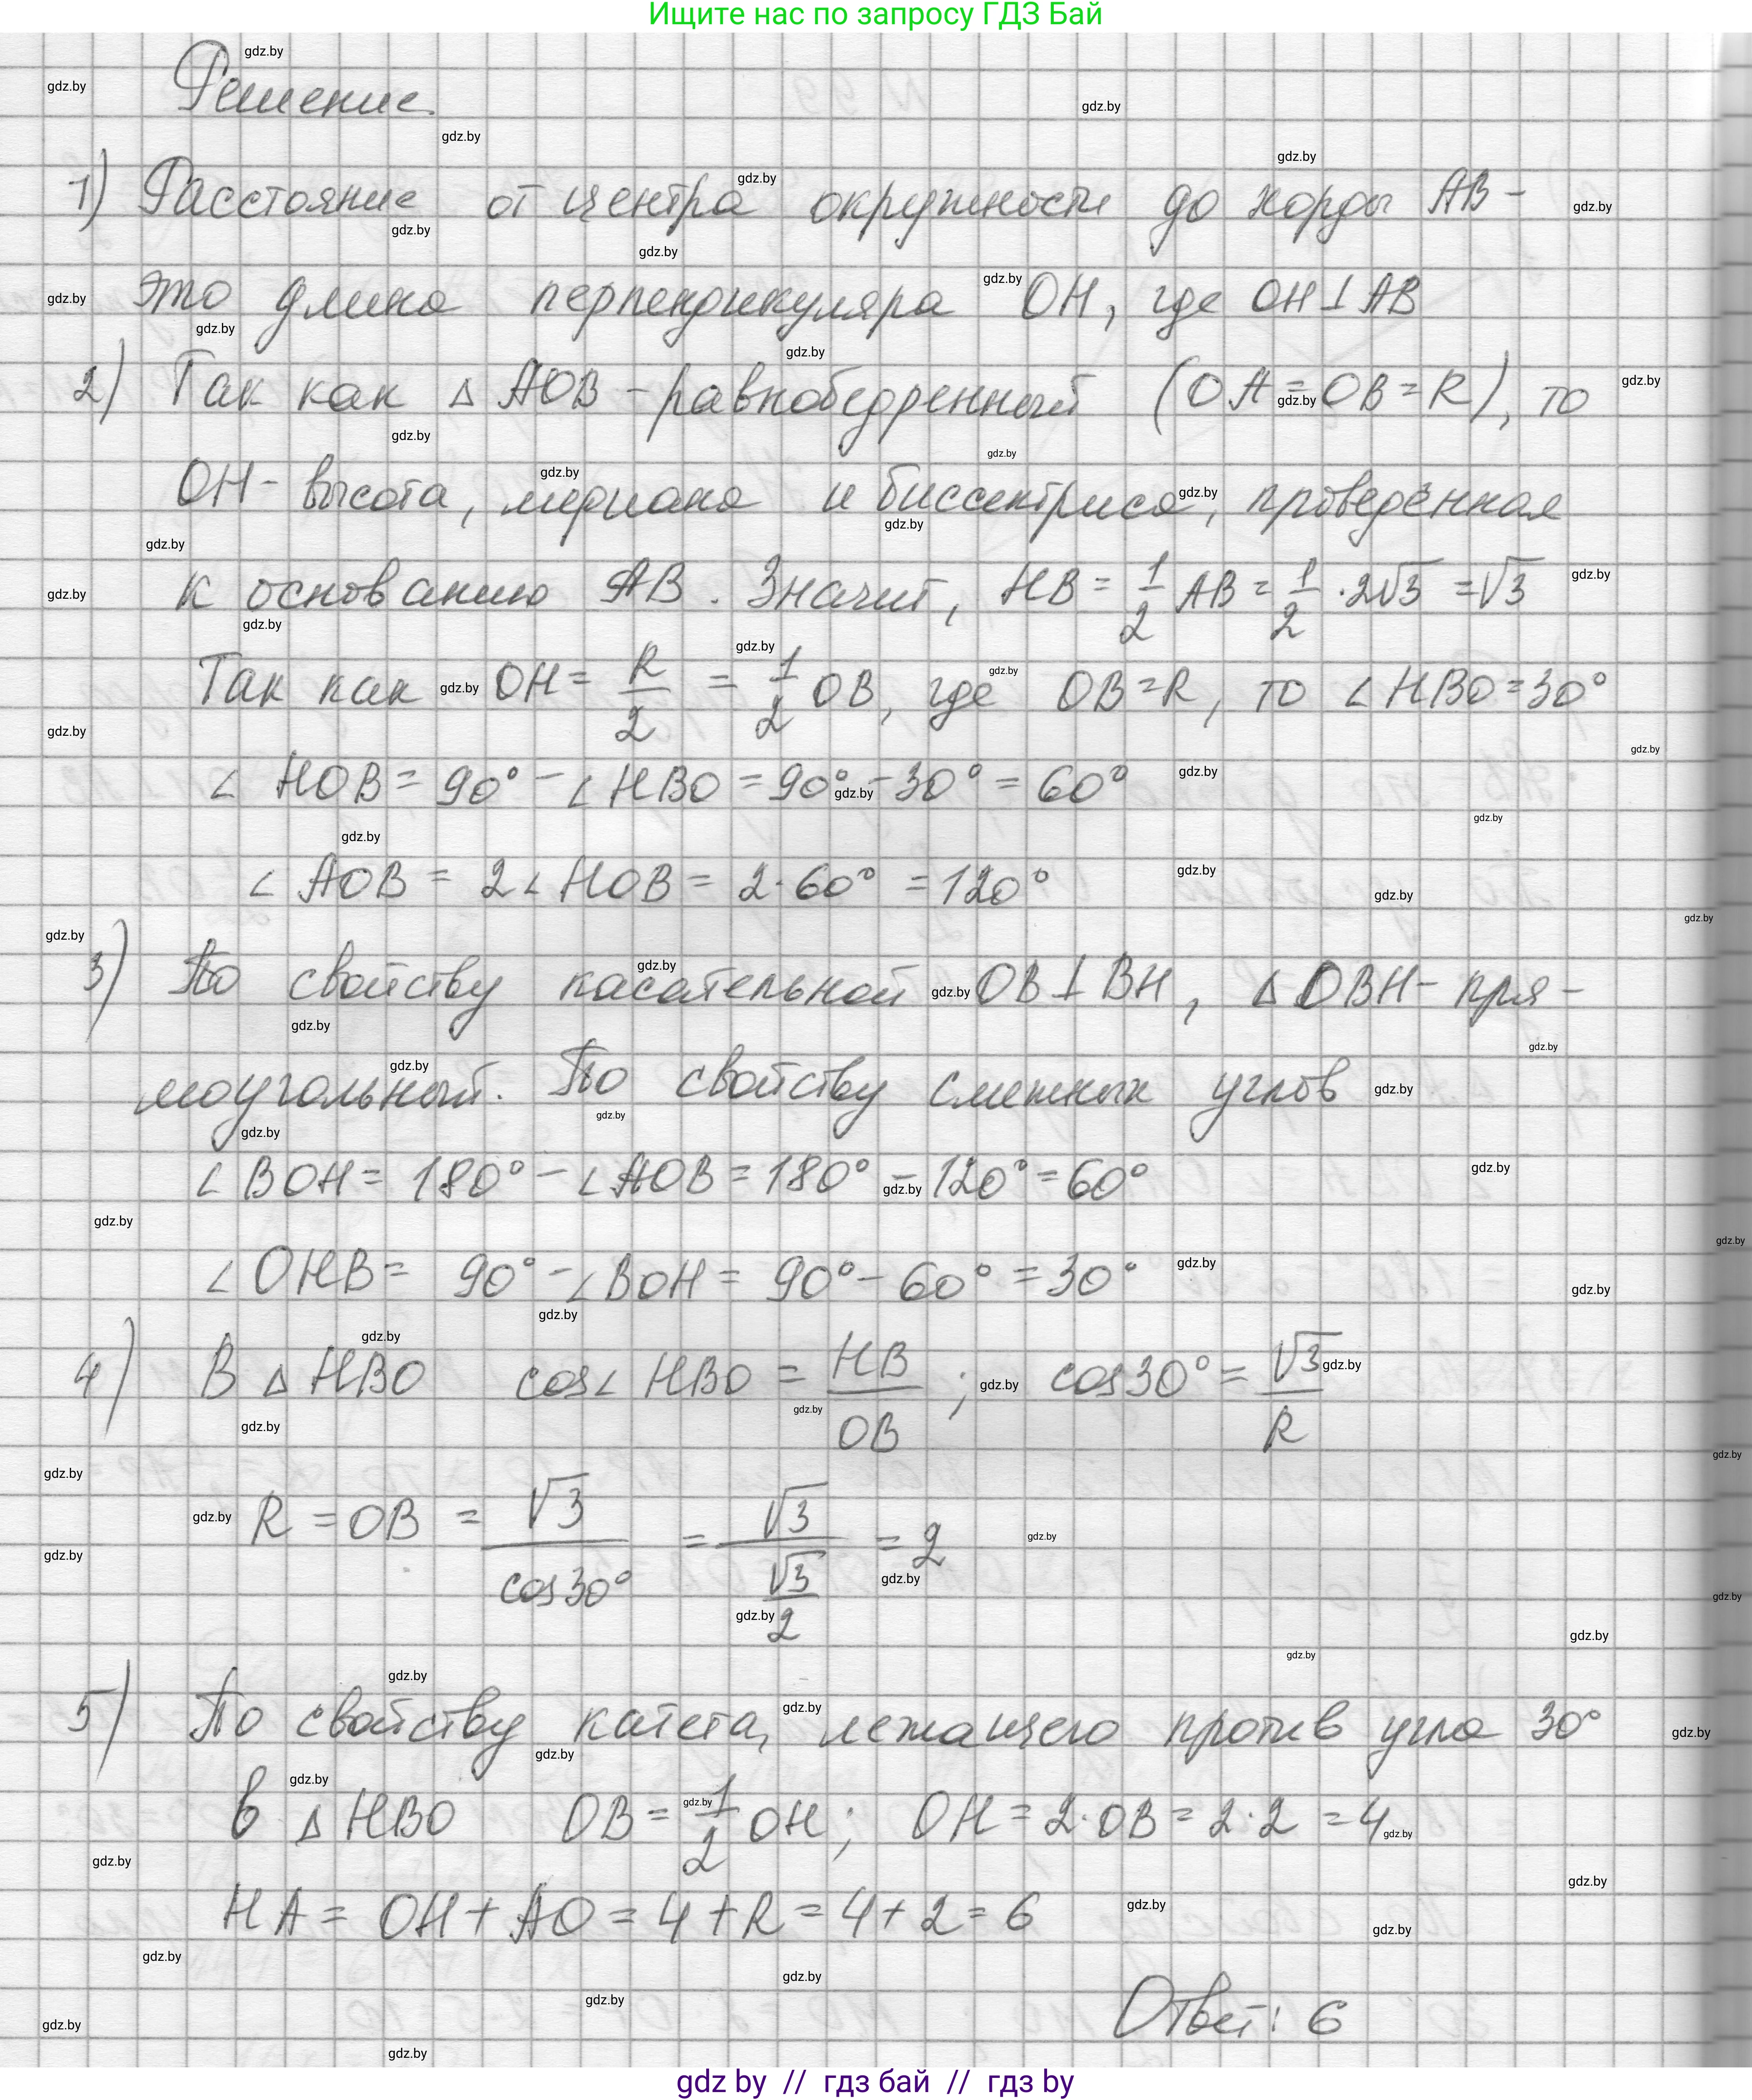 Ищите нас по запросу ГДЗ Бай
Решение.
1) Расстояние от центра окружности до хорды AB -
это длина перпендикуляра OH, где OH ⊥ AB
2) Так как △ AOB - равнобедренный (OA = OB = R), то
OH - высота, медиана и биссектриса, проведённая
к основанию AB. Значит, HB = 1/2 AB = 1/2 · 2√3 = √3
Так как OH = R/2 = 1/2 OB, где OB = R, то ∠HBO = 30°
∠ HOB = 90° - ∠ HBO = 90° - 30° = 60°
∠ AOB = 2∠ HOB = 2 · 60° = 120°
3) По свойству касательной OB ⊥ BH, △ OBH - пря-
моугольный. По свойству смежных углов
∠ BOH = 180° - ∠AOB = 180° - 120° = 60°
∠ OHB = 90° - ∠BOH = 90° - 60° = 30°
4) В △ HBO cos∠ HBO = HB/OB ; cos30° = √3/R
R = OB = √3/cos30° = √3/(√3/2) = 2
5) По свойству катета, лежащего против угла 30°
в △ HBO OB = 1/2 OH; OH = 2·OB = 2·2 = 4
HA = OH + AO = 4 + R = 4 + 2 = 6
Ответ: 6
gdz by // гдз бай // гдз by